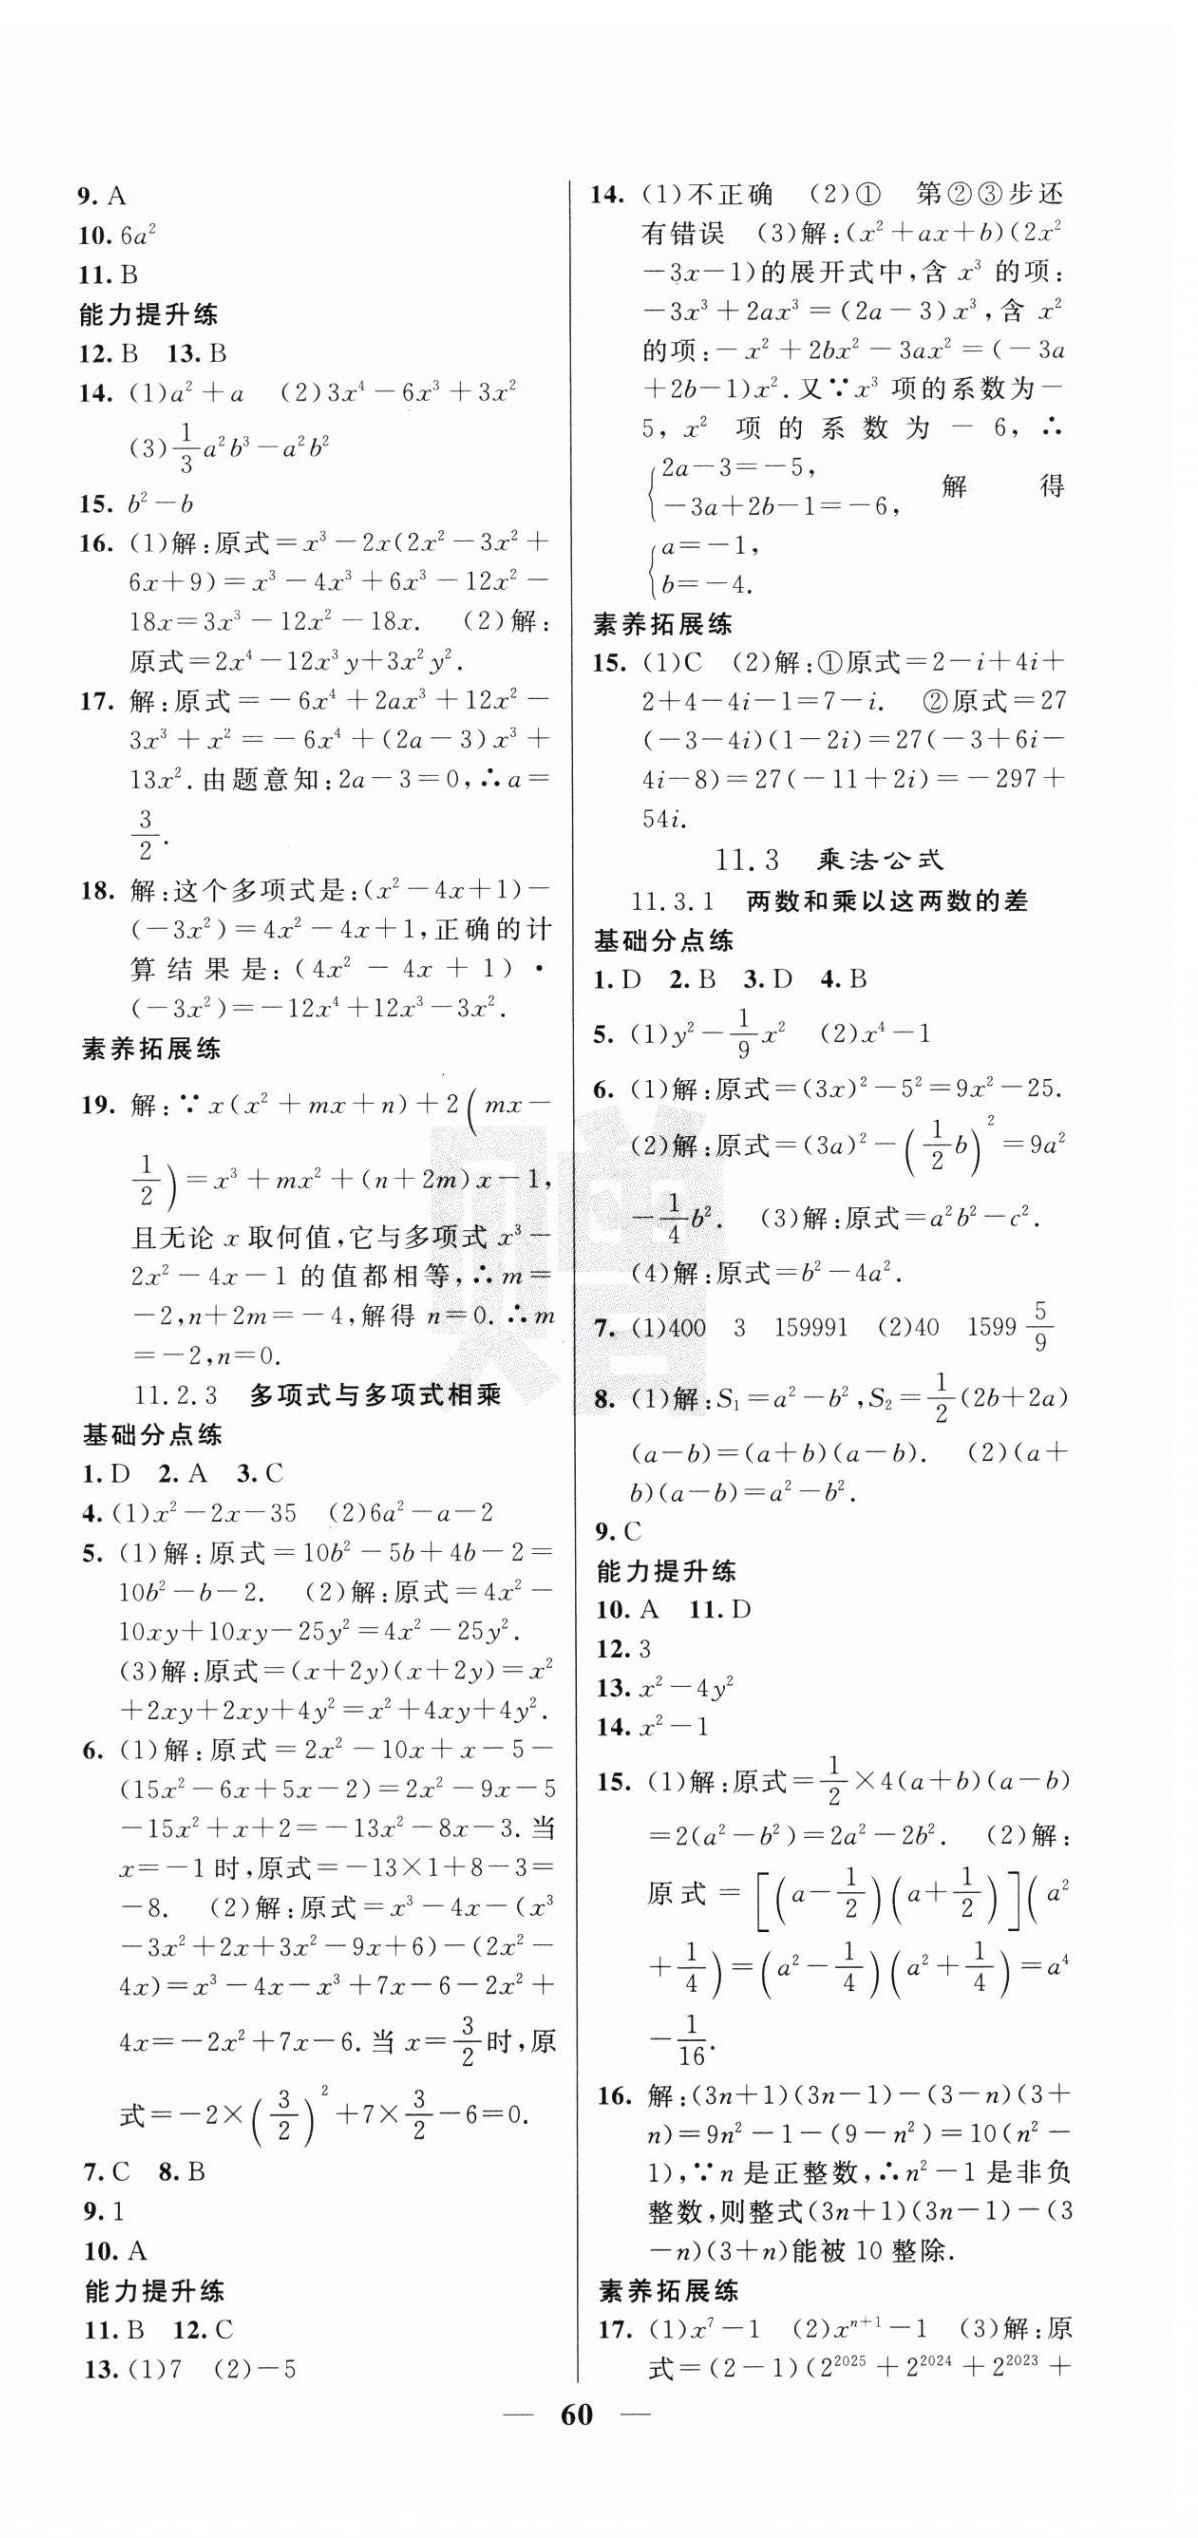 9. A
10. 6a²
11. B
能力提升练
12. B 13. B
14. (1)a²+a (2)3x⁴-6x³+3x²
(3)1/3a²b³-a²b²
15. b²-b
16. (1)解:原式=x³-2x(2x²-3x²+
6x+9)=x³-4x³+6x³-12x²-
18x=3x³-12x²-18x. (2)解:
原式=2x⁴-12x³y+3x²y².
17. 解:原式=-6x⁴+2ax³+12x²-
3x³+x²=-6x⁴+(2a-3)x³+
13x².由题意知:2a-3=0,∴a=
3/2.
18. 解:这个多项式是:(x²-4x+1)-
(-3x²)=4x²-4x+1,正确的计
算结果是:(4x²-4x+1)·
(-3x²)=-12x⁴+12x³-3x².
素养拓展练
19. 解:∵x(x²+mx+n)+2(mx-
1/2)=x³+mx²+(n+2m)x-1,
且无论x取何值,它与多项式x³-
2x²-4x-1的值都相等,∴m=
-2,n+2m=-4,解得n=0.∴m
=-2,n=0.
11.2.3 多项式与多项式相乘
基础分点练
1. D 2. A 3. C
4. (1)x²-2x-35 (2)6a²-a-2
5. (1)解:原式=10b²-5b+4b-2=
10b²-b-2. (2)解:原式=4x²-
10xy+10xy-25y²=4x²-25y².
(3)解:原式=(x+2y)(x+2y)=x²
+2xy+2xy+4y²=x²+4xy+4y².
6. (1)解:原式=2x²-10x+x-5-
(15x²-6x+5x-2)=2x²-9x-5
-15x²+x+2=-13x²-8x-3.当
x=-1时,原式=-13×1+8-3=
-8. (2)解:原式=x³-4x-(x³
-3x²+2x+3x²-9x+6)-(2x²-
4x)=x³-4x-x³+7x-6-2x²+
4x=-2x²+7x-6.当x=3/2时,原
式=-2×(3/2)²+7×3/2-6=0.
7. C 8. B
9. 1
10. A
能力提升练
11. B 12. C
13. (1)7 (2)-5
14. (1)不正确 (2)① 第②③步还
有错误 (3)解:(x²+ax+b)(2x²
-3x-1)的展开式中,含x³的项:
-3x³+2ax³=(2a-3)x³,含x²
的项:-x²+2bx²-3ax²=(-3a
+2b-1)x².又∵x³项的系数为-
5,x²项的系数为-6,∴
{2a-3=-5,
-3a+2b-1=-6, 解得
{a=-1,
b=-4.
素养拓展练
15. (1)C (2)解:①原式=2-i+4i+
2+4-4i-1=7-i. ②原式=27
(-3-4i)(1-2i)=27(-3+6i-
4i-8)=27(-11+2i)=-297+
54i.
11.3 乘法公式
11.3.1 两数和乘以这两数的差
基础分点练
1. D 2. B 3. D 4. B
5. (1)y²-1/9x² (2)x⁴-1
6. (1)解:原式=(3x)²-5²=9x²-25.
(2)解:原式=(3a)²-(1/2b)²=9a²
-1/4b². (3)解:原式=a²b²-c².
(4)解:原式=b²-4a².
7. (1)400 3 159991 (2)40 1599 5/9
8. (1)解:S₁=a²-b²,S₂=1/2(2b+2a)
(a-b)=(a+b)(a-b). (2)(a+
b)(a-b)=a²-b².
9. C
能力提升练
10. A 11. D
12. 3
13. x²-4y²
14. x²-1
15. (1)解:原式=1/2×4(a+b)(a-b)
=2(a²-b²)=2a²-2b². (2)解:
原式=[(a-1/2)(a+1/2)](a²
+1/4)=(a²-1/4)(a²+1/4)=a⁴
-1/16.
16. 解:(3n+1)(3n-1)-(3-n)(3+
n)=9n²-1-(9-n²)=10(n²-
1),∵n是正整数,∴n²-1是非负
整数,则整式(3n+1)(3n-1)-(3
-n)(3+n)能被10整除.
素养拓展练
17. (1)x⁷-1 (2)xⁿ⁺¹-1 (3)解:原
式=(2-1)(2²⁰²⁵+2²⁰²⁴+2²⁰²³+
— 60 —